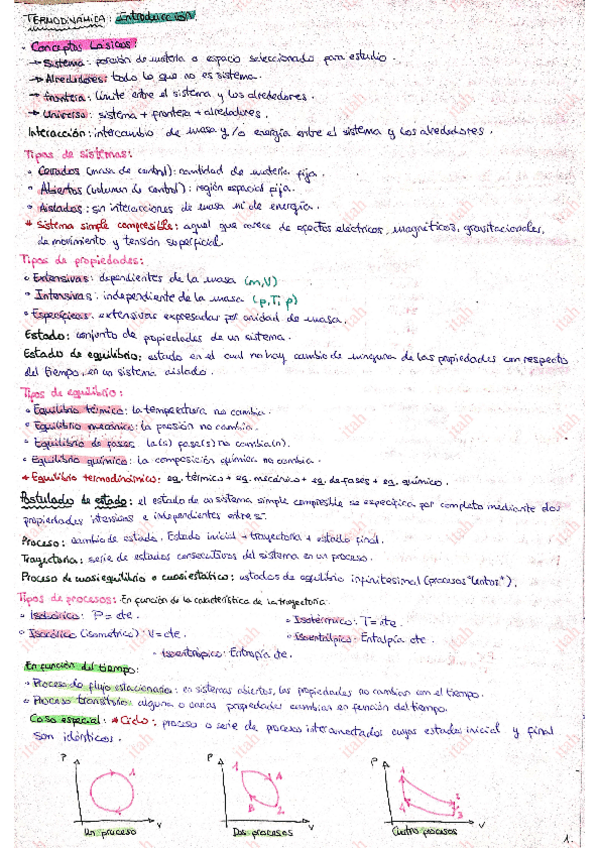 TERMODINÁMICA: Introducción.
· Conceptos básicos:
→ Sistema: porción de materia o espacio seleccionado para estudio.
→ Alrededores: todo lo que no es sistema.
→ Frontera: límite entre el sistema y los alrededores.
→ Universo: sistema + frontera + alrededores.
Interacción: intercambio de masa y/o energía entre el sistema y los alrededores.
Tipos de sistemas:
· Cerrados (masa de control): cantidad de materia fija.
· Abiertos (volumen de control): región espacial fija.
· Aislados: sin interacciones de masa ni de energía.
* Sistema simple compresible: aquel que carece de efectos eléctricos, magnéticos, gravitacionales,
de movimiento y tensión superficial.
Tipos de propiedades:
· Extensivas: dependientes de la masa (m,V)
· Intensivas: independiente de la masa (p,T, ρ)
· Específicas: extensivas expresadas por unidad de masa.
Estado: conjunto de propiedades de un sistema.
Estado de equilibrio: estado en el cual no hay cambio de ninguna de las propiedades con respecto
del tiempo, en un sistema aislado.
Tipos de equilibrio:
· Equilibrio térmico: la temperatura no cambia.
· Equilibrio mecánico: la presión no cambia.
· Equilibrio de fases: la(s) fase(s) no cambia(n).
· Equilibrio químico: la composición química no cambia.
* Equilibrio termodinámico: eq. térmico + eq. mecánico + eq. de fases + eq. químico.
Postulado de estado: el estado de un sistema simple compresible se especifica por completo mediante dos
propiedades intensivas e independientes entre sí.
Proceso: cambio de estado. Estado inicial + trayectoria + estado final.
Trayectoria: serie de estados consecutivos del sistema en un proceso.
Proceso de cuasiequilibrio o cuasiestático: estados de equilibrio infinitesimal (procesos "lentos").
Tipos de procesos: En función de la característica de la trayectoria
· Isobárico: P = cte.
· Isotérmico: T = cte.
· Isocórico (isometrico): V = cte.
· Isoentálpico: Entalpía cte.
· Isoentrópico: Entropía cte.
En función del tiempo:
· Proceso de flujo estacionario: en sistemas abiertos, las propiedades no cambian con el tiempo.
· Proceso transitorio: alguna o varias propiedades cambian en función del tiempo.
Caso especial: * Ciclo: proceso o serie de procesos interconectados cuyos estados inicial y final
son idénticos.
P 1 V
Un proceso
P 1 A B 2 V
Dos procesos
P 4 1 2 3 V
Cuatro procesos
1.
itah